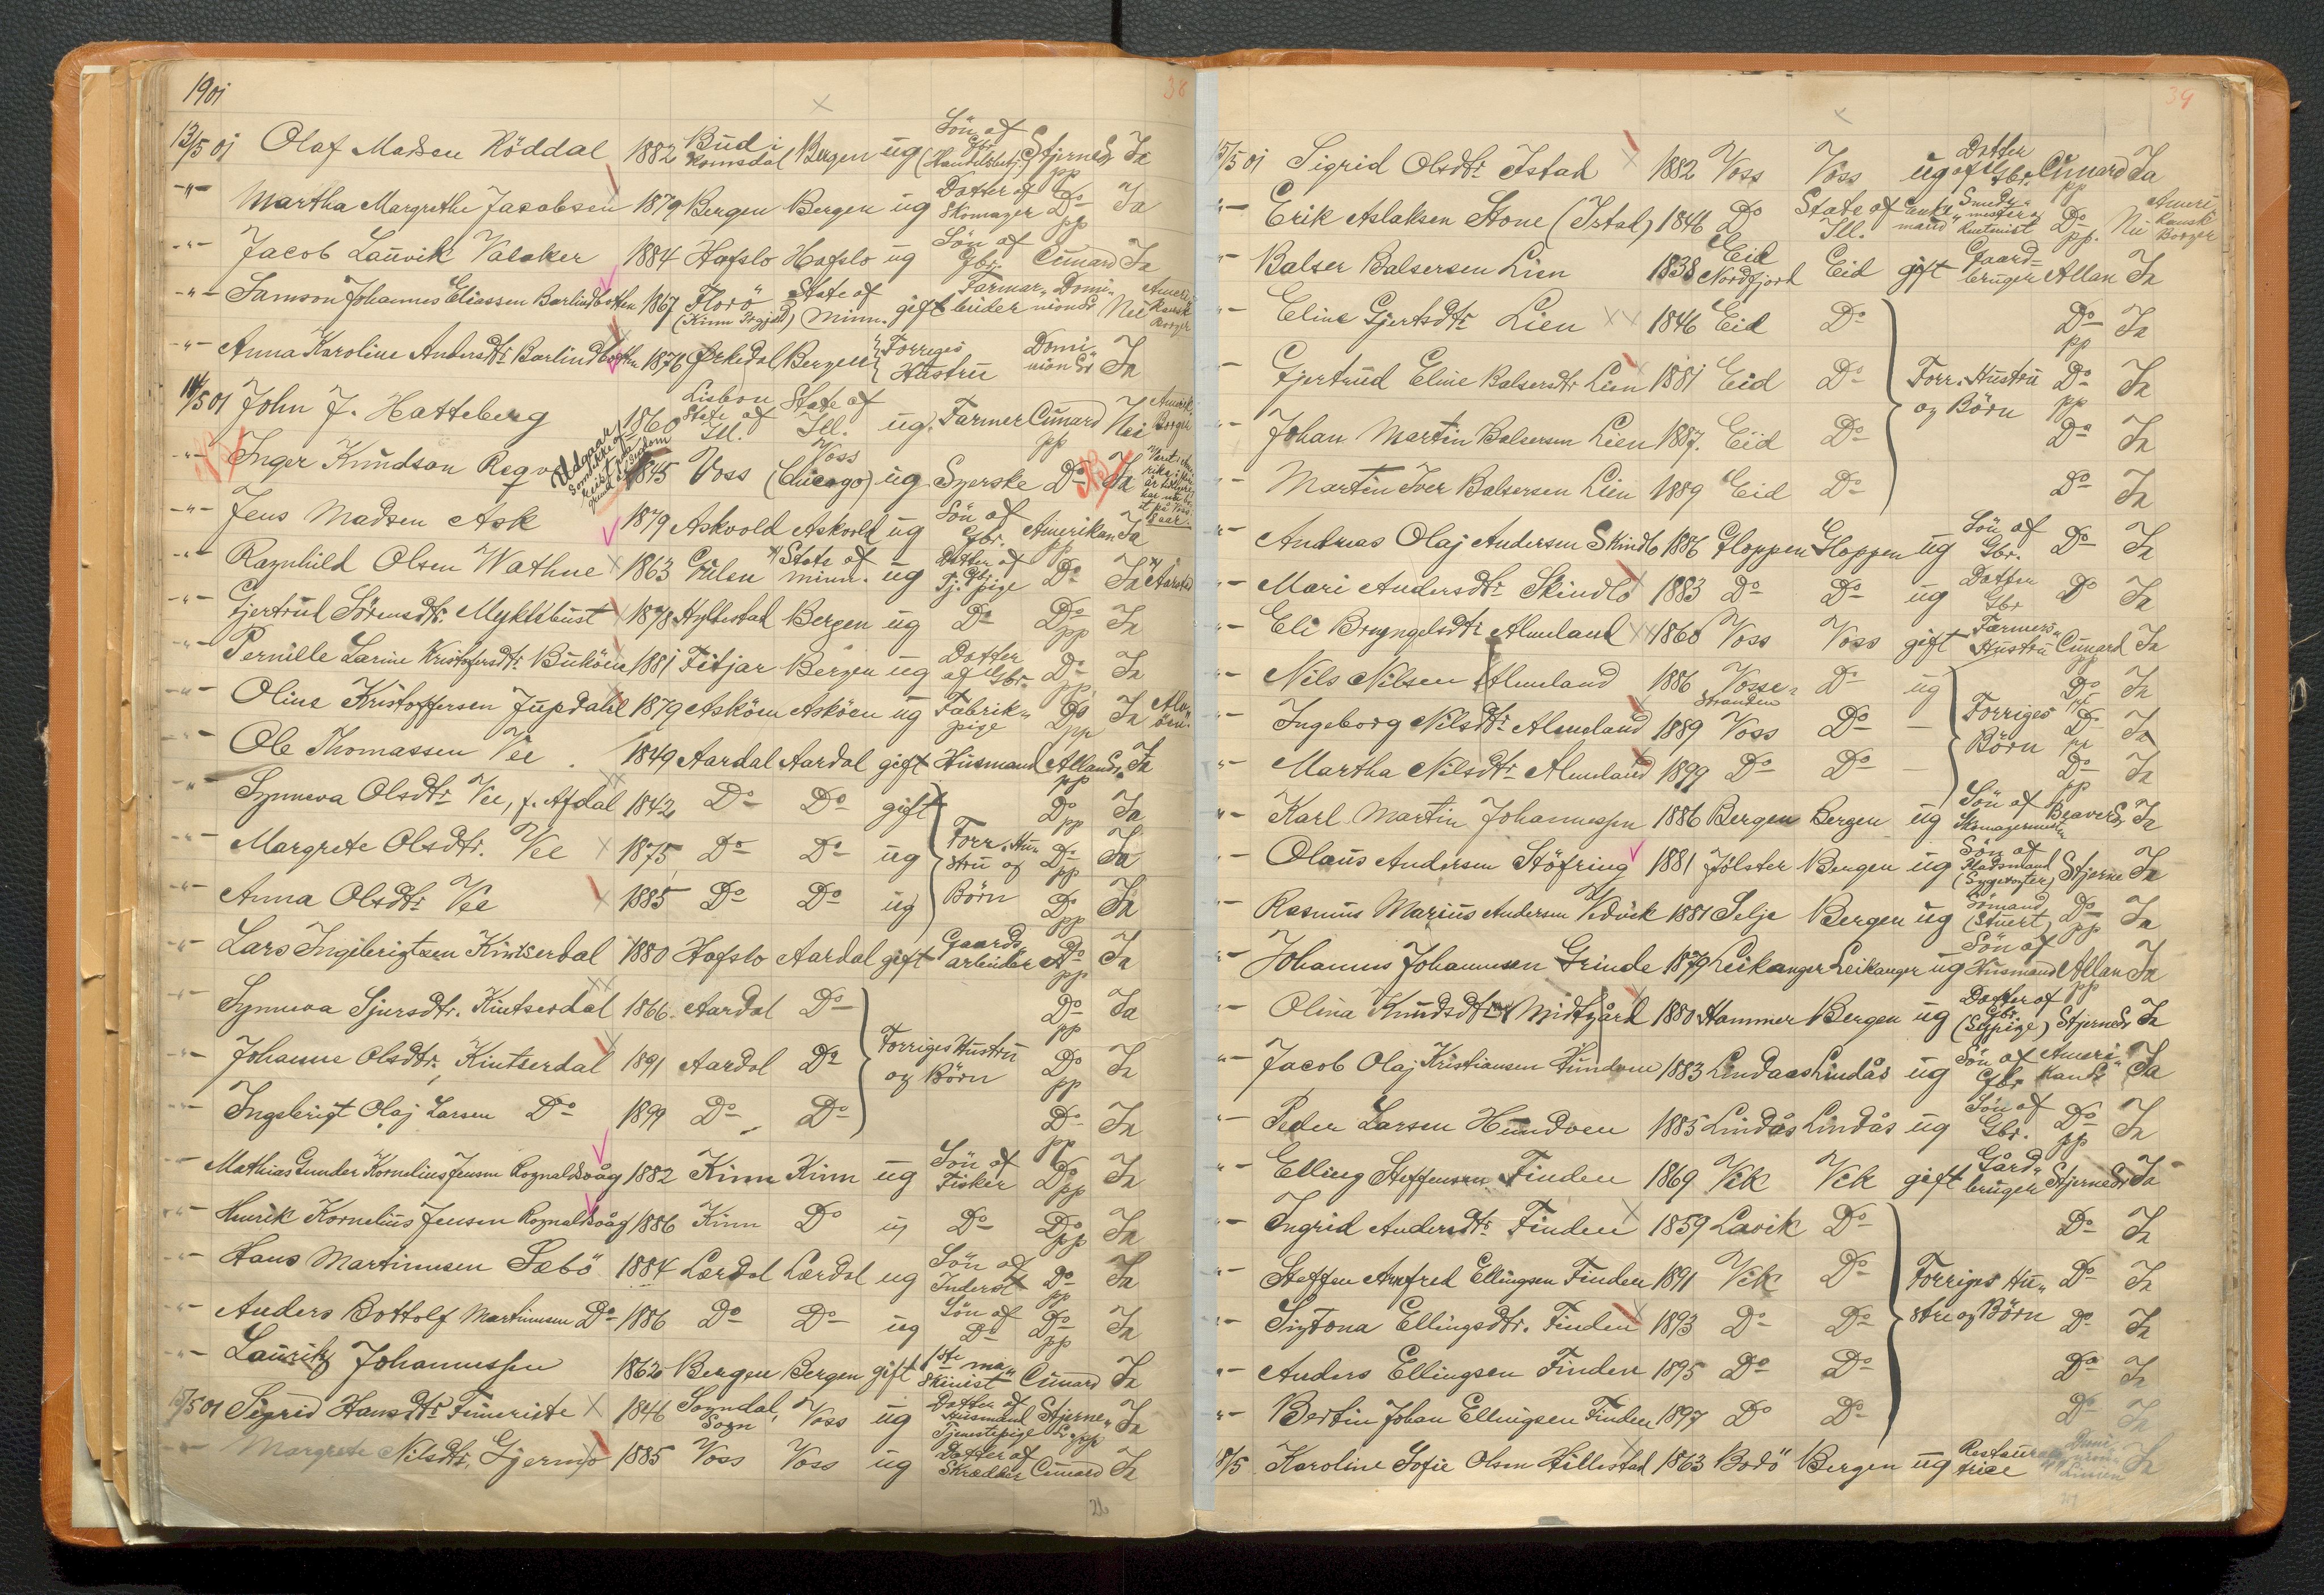 1901
38
13/5 01 Olaf Madsen Röddal 1882 Bud i Romsdal Bergen ug Sön af Gbr. (Handelsbetj.) Stjernel. pp Ja
-"- Martha Margrethe Jacobsen 1879 Bergen Bergen ug Datter af Skomager Do pp Ja
-"- Jacob Lauvik Valaker 1884 Hafslo Hafslo ug Sön af Gbr. Cunard Ja
-"- Samson Johannes Eliassen Barlindbotten 1867 Florö (Kinn Prgjæld) State of Minn. gift Farmar„ beider Domi„ nion L. Nei Ameri„ kansk Borger
-"- Anna Karoline Andersdtr. Barlindbotten 1876 Ørkedal Bergen Forriges Hustru Domi„ nion L. Ja
14/5 01 John J. Hatteberg 1860 Lisbon State of Ill. State of Ill. ug. Farmer Cunard pp Nei Amerik. Borger
-"- Inger Knudson Reqve 1845 Voss Voss (Chicago) ug Syerske Do Ja
Udgaar
-"- Jens Madsen Ask 1879 Askvold Askvold ug Sön af Gbr. Amerikan pp Ja
-"- Raynhild Olsen Wathne 1863 Gulen *) State of Minn. ug Datter af Gbr. Tj. pige Do Ja *) Aarstad
-"- Gjertrud Sörensdtr. Myklebust 1878 Hyllestad Bergen ug Do Do pp Ja
-"- Pernille Larine Kristofersdtr. Buköen 1881 Fitjar Bergen ug Datter af Gbr. Do pp Ja
-"- Oline Kristoffersen Jupdahl 1879 Asköen Asköen ug Fabrik„ pige Do pp Ja
-"- Ole Thomassen Vee 1849 Aardal Aardal gift Husmand Allanl. pp Ja
-"- Synneva Olsdtr. Vee, f. Afdal 1842 Do Do gift Do pp Ja
-"- Margrete Olsdtr. Vee 1875 Do Do ug Forr. Hu„ stru og Do pp Ja
-"- Anna Olsdtr. Vee 1885 Do Do ug Börn Do pp Ja
-"- Lars Ingebrigtsen Kintserdal 1880 Hafslo Aardal gift Gaards„ arbeider Do pp Ja
-"- Synneva Sjursdtr. Kintserdal 1866 Aardal Do Do pp Ja
-"- Johanne Olsdtr. Kintserdal 1891 Aardal Do Forriges Hustru og Börn Do pp Ja
-"- Ingebrigt Olaj Larsen Do 1899 Do Do Do pp Ja
-"- Mathias Gunder Kornelius Jensen Rognaldsvåg 1882 Kinn Kinn ug Sön af Fisker Do pp Ja
-"- Henrik Kornelius Jensen Rognaldsvåg 1886 Kinn Do ug Do Do pp Ja
-"- Hans Martinusen Sæbö 1884 Lærdal Lærdal ug Sön af Inderst Do pp Ja
-"- Anders Bottolf Martinusen Do 1886 Do Do ug Sön af Do Do pp Ja
-"- Lauritz Johannessen 1862 Bergen Bergen gift 1ste ma„ skinist Cunard Ja
15/5 01 Sigrid Hansdtr. Tuneriste 1846 Sogndal, Sogn Voss ug Datter af Husmand Tjenestepige Stjerne„ L. pp Ja
-"- Margrete Nilsdtr. Gjermo 1885 Voss Voss ug Datter af Skrædder Cunard Ja
39
15/5 01 Sigrid Olsdtr. Istad 1882 Voss Voss ug Datter af Gbr. Cunard pp Ja
"- Erik Aslaksen Stone (Istad) 1846 Do State of Ill. Enke„ mand Do pp. Nei Ameri kansk Borger
"- Balser Balsersen Lien 1838 Eid Nordfjord Eid gift Gaard„ bruger Allan Ja
"- Eline Gjertsdtr. Lien 1846 Eid Do Do pp Ja
"- Gjertrud Eline Balsersdtr. Lien 1881 Eid Do Forr. Hustru og Börn Do pp Ja
"- Johan Martin Balsersen Lien 1887. Eid Do Do Ja
"- Martin Iver Balsersen Lien 1889 Eid Do Do Ja
"- Andreas Olaj Andersen Skindlo 1886 Gloppen Gloppen ug Sön af Gbr. Do Ja
"- Mari Andersdtr. Skindlo 1883 Do Do ug Datter Gbr Do Ja
"- Eli Bryngelsdtr. Almeland 1860 Voss Voss gift Farmers„ Hustru Cunard pp Ja
"- Nils Nilsen Almeland 1886 Vosse„ stranden Do ug Do pp Ja
"- Ingeborg Nilsdtr. Almeland 1889 Voss Do - Forriges Börn Do pp Ja
"- Martha Nilsdtr. Almeland 1899 Do Do - Do pp Ja
"- Karl Martin Johannessen 1886 Bergen Bergen ug Sön af Skomagermester Beaverl. Ja
"- Olaus Andersen Stöfring 1881 Jölster Bergen ug Sön af Pladsmand Stjerne Ja
"- Rasmus Marius Andersen Vedvik 1881 Selje Bergen ug Sömand (Stuert) Do pp Ja
"- Johannes Johannesen Grinde 1879 Leikanger Leikanger ug Sön af Husmand Allan pp Ja
"- Olina Knudsdtr. Midtgård 1880 Hammer Bergen ug Datter af Gbr. (Sypige) Stjernel. Ja
"- Jacob Olaj Kristiansen Hundven 1883 Lindaas Lindås ug Sön af Gbr Ameri„ kanl. Ja
"- Peder Larsen Hundven 1885 Lindås Lindås ug Sön af Gbr. Do pp Ja
"- Elling Steffensen Finden 1869 Vik Vik gift Gård„ bruger Stjernel. Ja
"- Ingrid Andersdtr. Finden 1859 Lavik Do Do Ja
"- Steffen Arnfred Ellingsen Finden 1891 Vik Do Forriges Hu„ Do Ja
"- Sigtona Ellingsdtr. Finden 1893 Do Do stru og Börn Do Ja
"- Anders Ellingsen Finden 1895 Do Do Do Ja
"- Bertin Johan Ellingsen Finden 1897 Do Do Do Ja
18/5 Karoline Sofie Olsen Hillestad 1863 Bodö Bergen ug Restaura trice Linien Ja